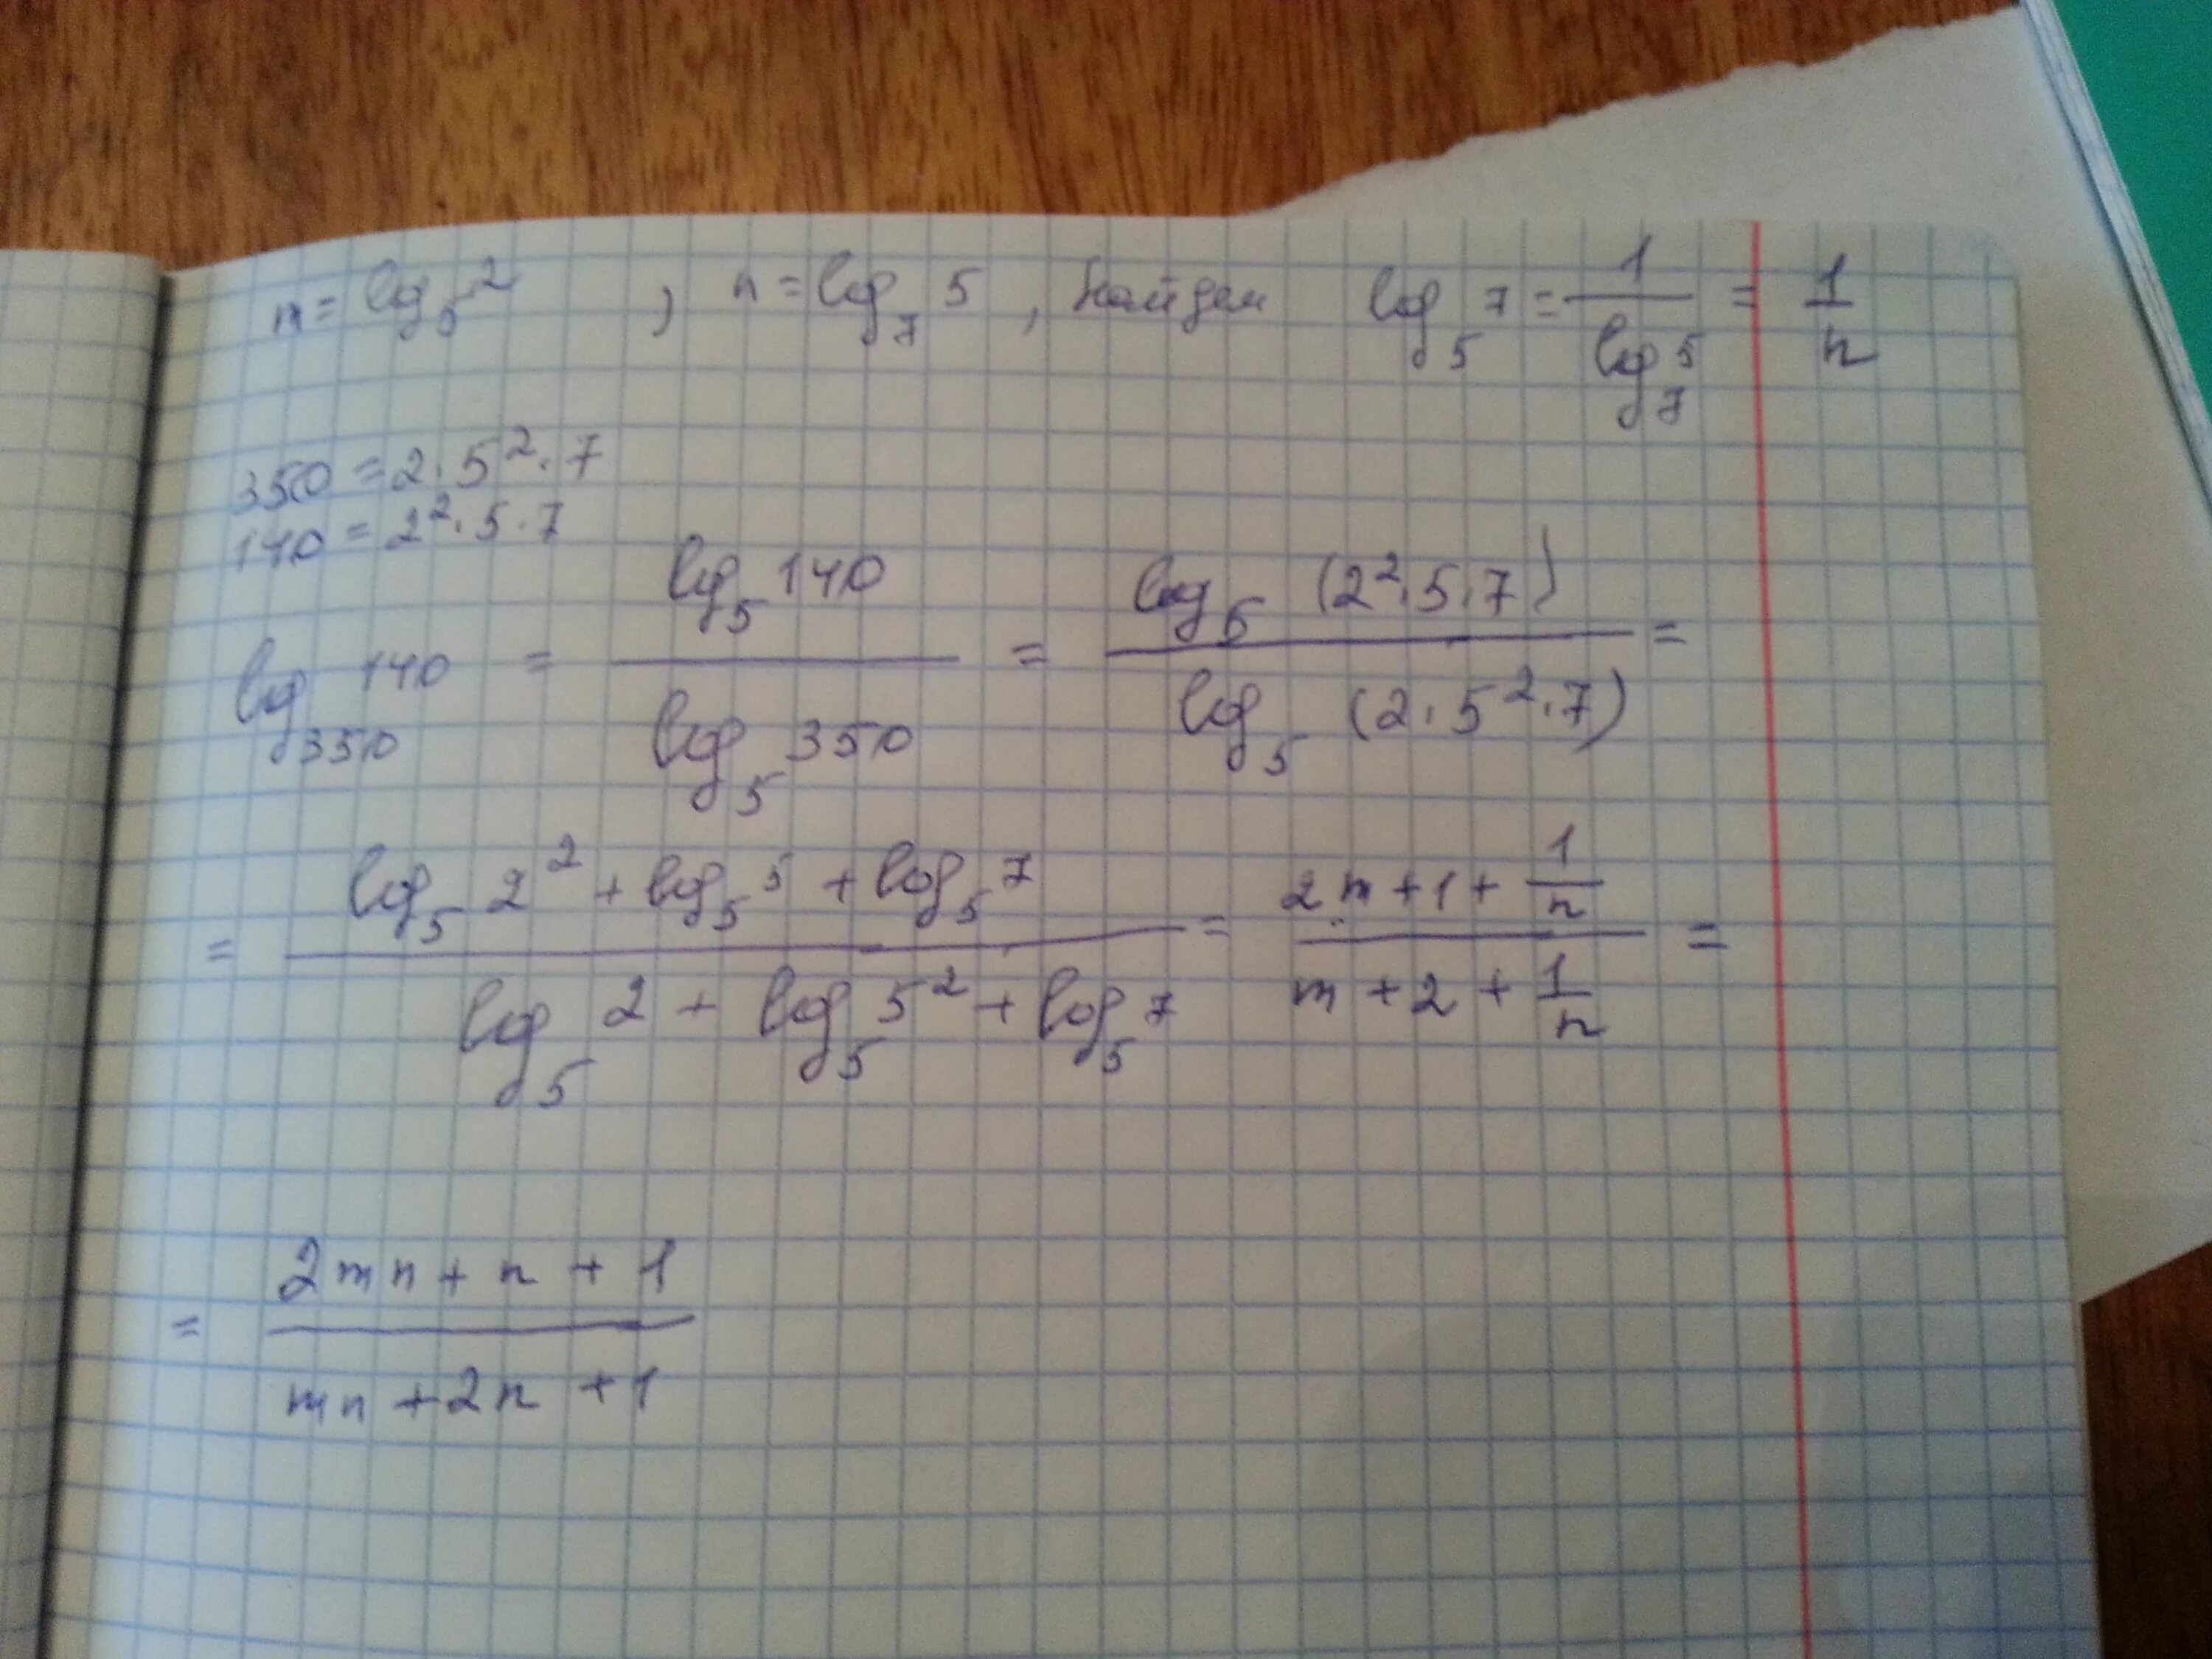 m = log₅ 2 , n = log₇ 5 , Найдем log₅ 7 = 1/(log₇ 5) = 1/n
350 = 2·5²·7
140 = 2²·5·7
log₃₅₀ 140 = (log₅ 140)/(log₅ 350) = (log₅ (2²·5·7))/(log₅ (2·5²·7)) =
= (log₅ 2² + log₅ 5 + log₅ 7)/(log₅ 2 + log₅ 5² + log₅ 7) = (2m + 1 + 1/n)/(m + 2 + 1/n) =
= (2mn + n + 1)/(mn + 2n + 1)